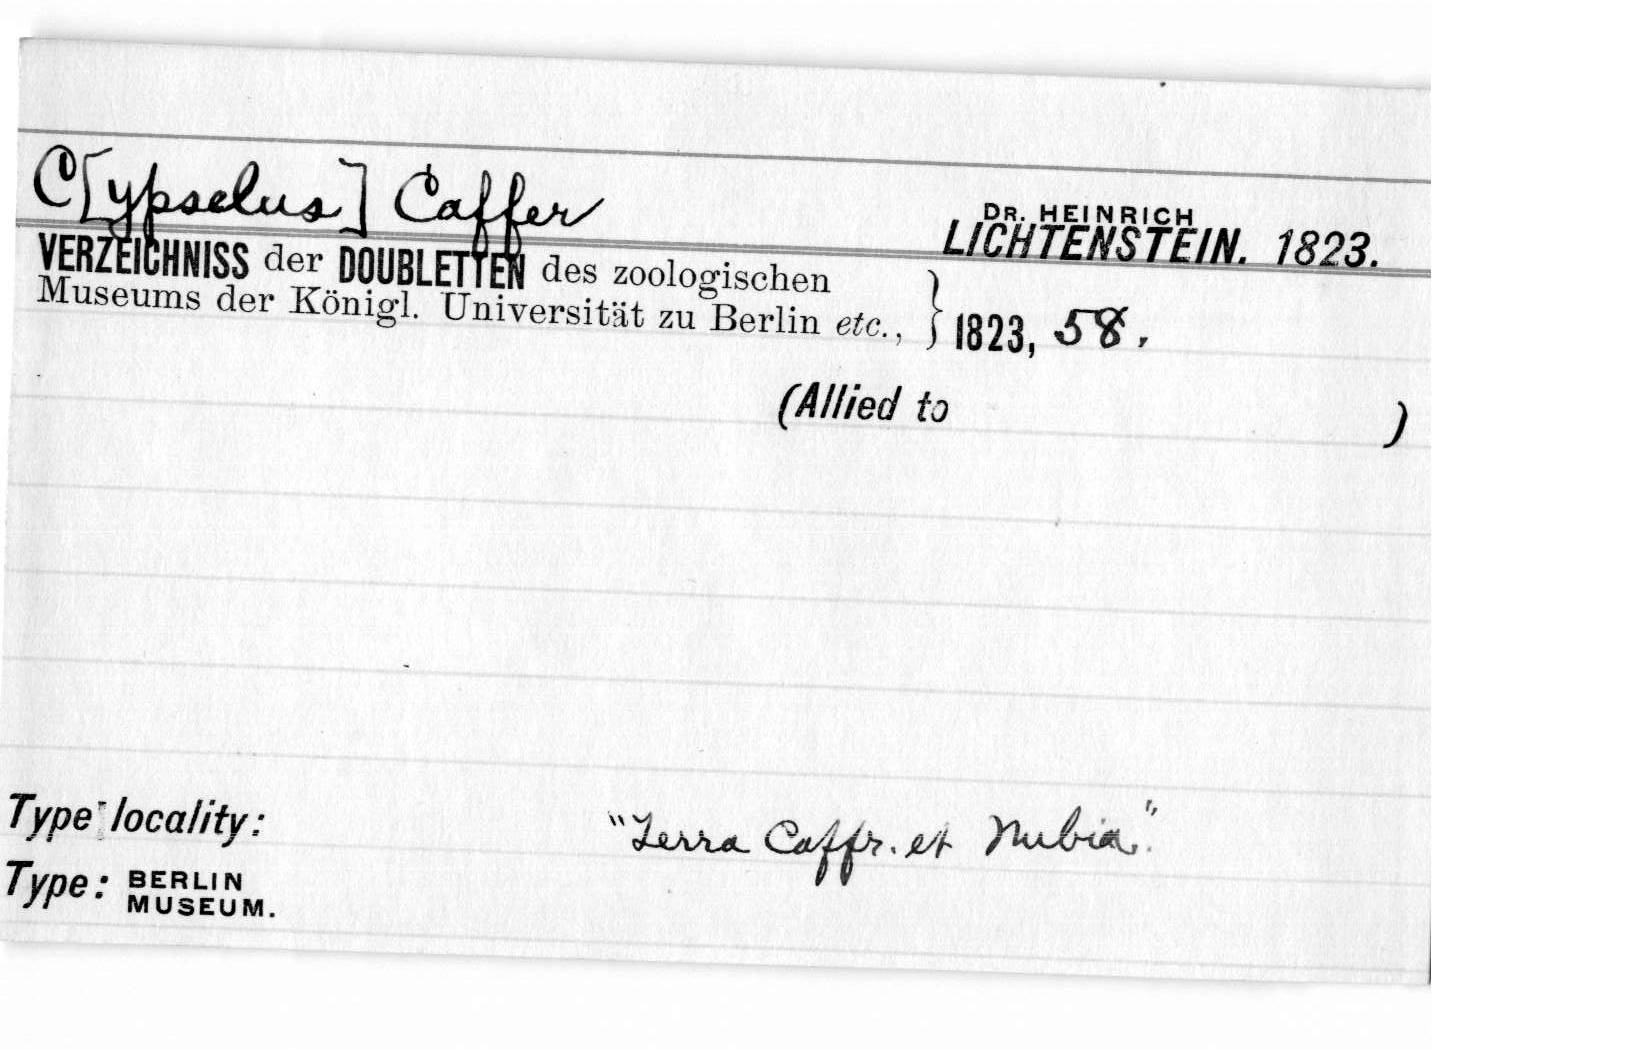 C[ypselus] Caffer
DR. HEINRICH
LICHTENSTEIN. 1823.
VERZEICHNISS der DOUBLETTEN des zoologischen
Museums der Königl. Universität zu Berlin etc., } 1823, 58.
(Allied to )
Type locality: "Terra Caffr. et Nubia".
Type: BERLIN
MUSEUM.